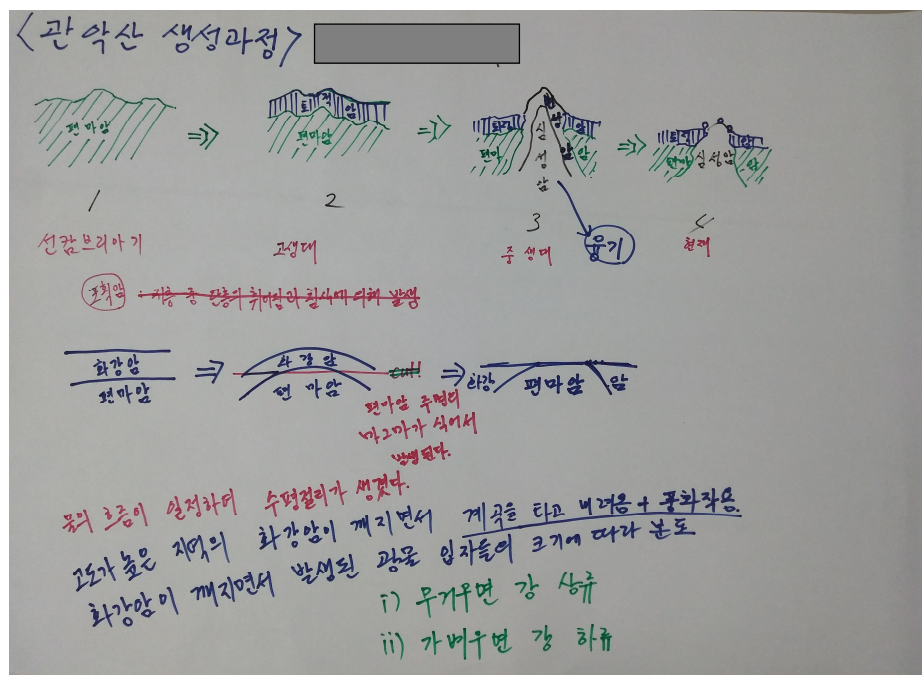 <관악산 생성과정>
편마암
퇴적암
편마암
화강
변성암
암
편마
심성암
암
퇴적
암
편마
심성암
암
1
2
3
4
선캄브리아기
고생대
중생대
융기
현재
포획암
: 지층 중 단층의 휘어짐과 침식에 의해 발생
화강암
편마암
화강암
편마암
cut!
화강
편마암
암
편마암 주변의
마그마가 식어서
발생된다.
물의 흐름이 일정하며 수평절리가 생겼다.
고도가 높은 지역의 화강암이 깨지면서 계곡을 타고 내려옴 + 풍화작용.
화강암이 깨지면서 발생된 광물 입자들의 크기에 따라 분도
i) 무거우면 강 상류
ii) 가벼우면 강 하류